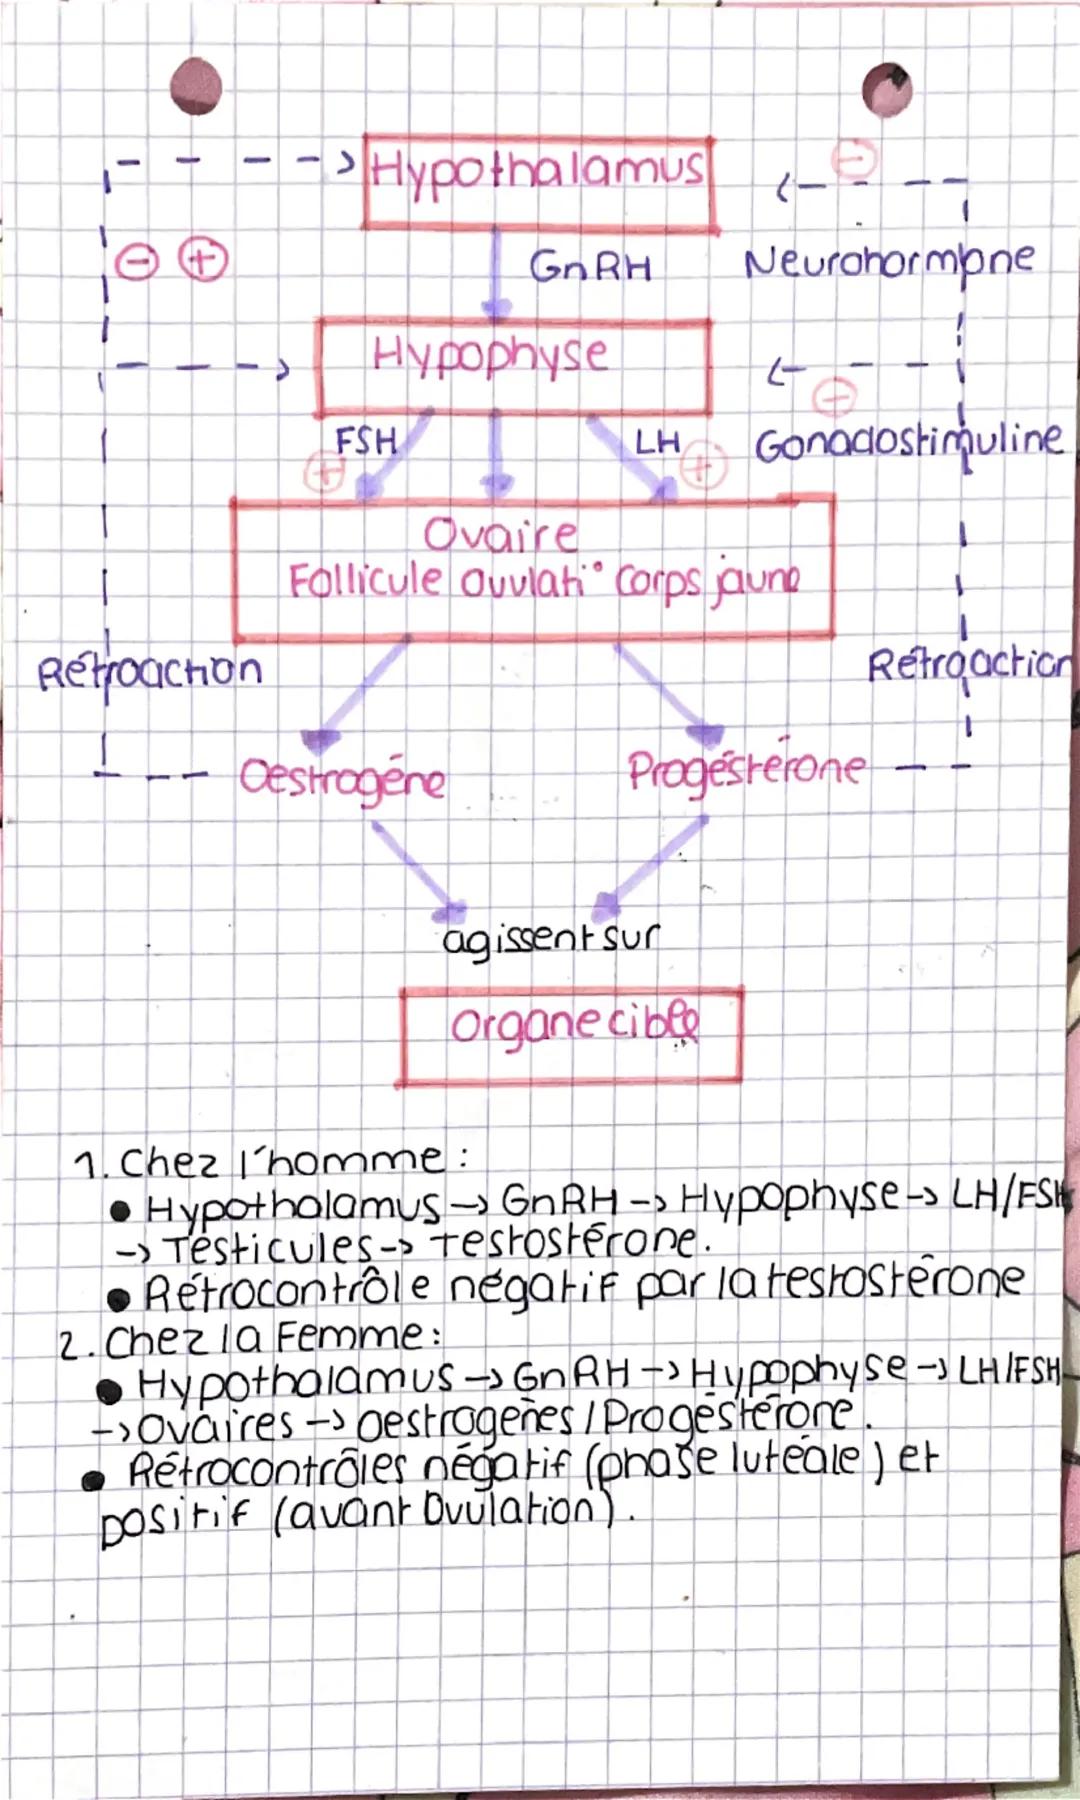 Hypothalamus
⊖
⊖ ⊕
GnRH
Neurohormone
Hypophyse
⊖
FSH
LH
Gonadostimuline
⊕
⊕
Ovaire
Follicule ovulati° corps jaune
Rétroaction
Rétroaction
Oestrogéne
Progéstérone
agissent sur
organe cible
1. Chez l'homme :
● Hypothalamus -> GnRH -> Hypophyse -> LH/FSH
-> Testicules -> testostérone.
● Rétrocontrôle négatif par la testostérone
2. Chez la Femme :
● Hypothalamus -> GnRH -> Hypophyse -> LH/FSH
-> Ovaires -> oestrogenes / Progéstérone.
● Rétrocontrôles négatif (phase lutéale) et
positif (avant Ovulation).